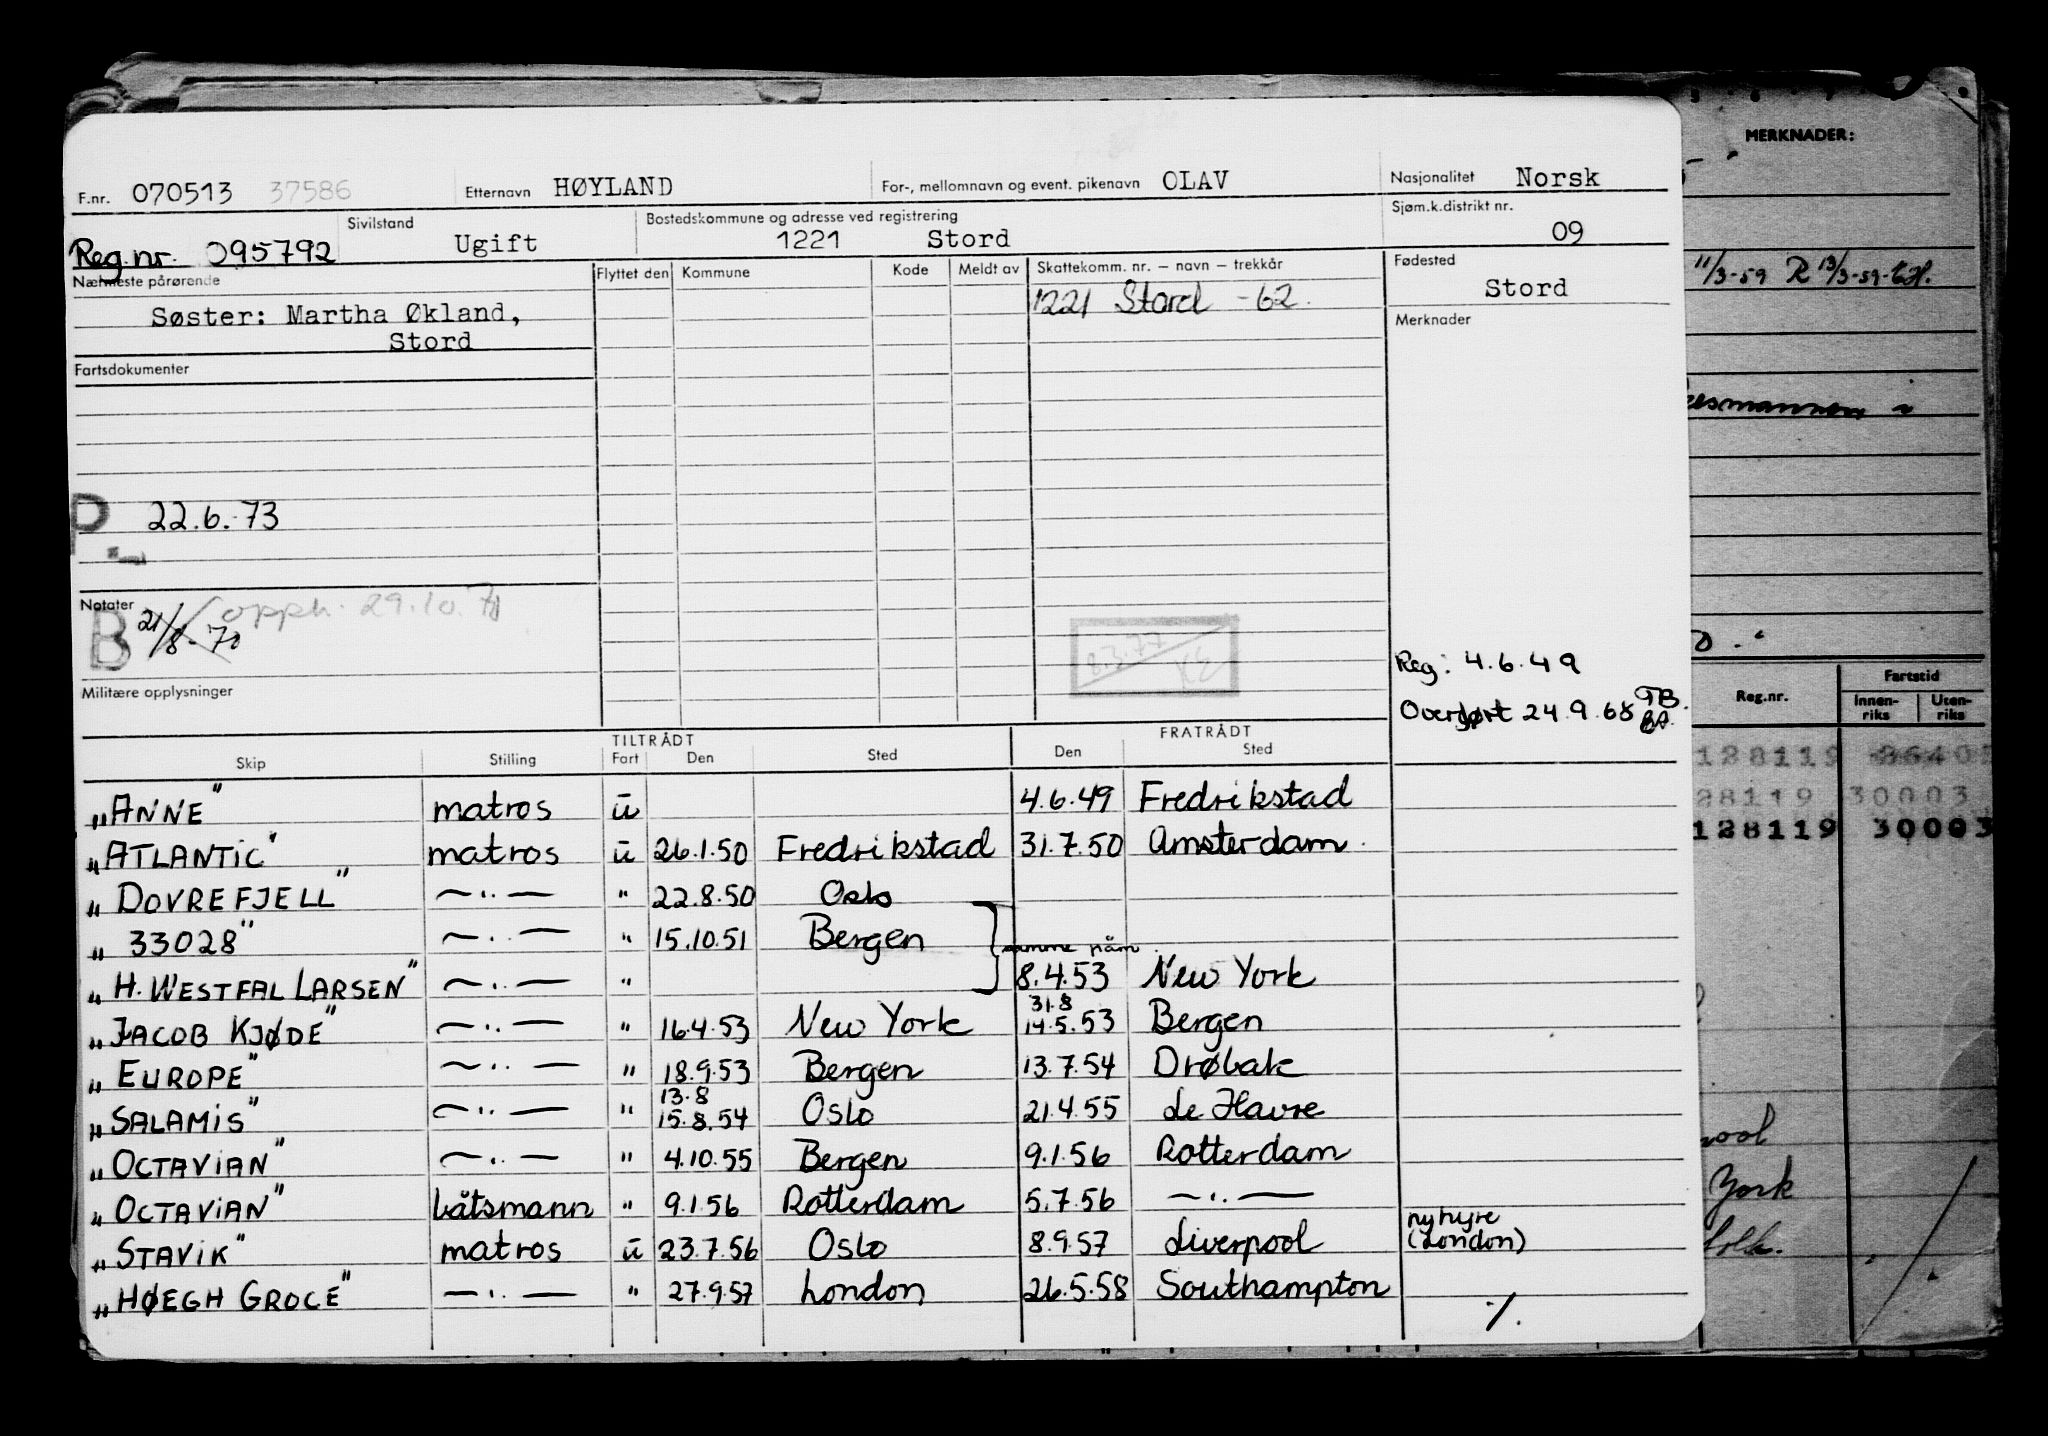 MERKNADER:
F.nr. 070513 37586 Etternavn HØYLAND For-, mellomnavn og event. pikenavn OLAV Nasjonalitet Norsk
Reg.nr. 095792 Sivilstand Ugift Bostedskommune og adresse ved registrering 1221 Stord Sjøm.k.distrikt nr. 09
Nærmeste pårørende Flyttet den Kommune Kode Meldt av Skattekomm. nr. – navn – trekkår Fødested
Søster: Martha Økland, 1221 Stord -62. Stord
Stord Merknader
11/3-59 R 13/3-59-
Fartsdokumenter
P 22.6.-73
Notater
B 21/8-70 opph. 29.10.71
8.3.77 KE
Reg: 4.6.49
Militære opplysninger
Overført 24.9.68 TB.
Reg.nr. Fartstid
Innen-riks Uten-riks
128119 3640
28119 30003
128119 30003
TILTRÅDT FRATRÅDT
Skip Stilling Fart Den Sted Den Sted
"ANNE" matros u 4.6.49 Fredrikstad
"ATLANTIC" matros u 26.1.50 Fredrikstad 31.7.50 Amsterdam.
"DOVREFJELL" —..— " 22.8.50 Oslo
"33028" —..— " 15.10.51 Bergen } samme påm.
"H. WESTFAL LARSEN" —..— " 8.4.53 New York
"JACOB KJØDE" —..— " 16.4.53 New York 31.8 14.5.53 Bergen
"EUROPE" —..— " 18.9.53 Bergen 13.7.54 Drøbak
"SALAMIS" —..— " 13.8 15.8.54 Oslo 21.4.55 Le Havre
"OCTAVIAN" —..— " 4.10.55 Bergen 9.1.56 Rotterdam
"OCTAVIAN" båtsmann " 9.1.56 Rotterdam 5.7.56 —..—
"STAVIK" matros u 23.7.56 Oslo 8.9.57 Liverpool ny hyre (London)
"HØEGH GROCE" —..— " 27.9.57 London 26.5.58 Southampton
./.
York